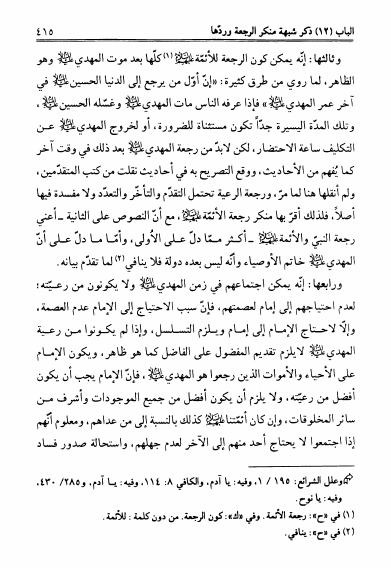 الباب (١٢) ذكر شبهة منكر الرجعة وردّها
٤١٥
وثالثها: إنّه يمكن كون الرجعة للأئمّة (١) كلّها بعد موت المهدي وهو
الظاهر، لما روي من طرق كثيرة: «إنّ أوّل من يرجع إلى الدنيا الحسين في
آخر عمر المهدي» فإذا عرفه الناس مات المهدي وغسّله الحسين،
وتلك المدّة اليسيرة جدّاً تكون مستثناة للضرورة، أو لخروج المهدي عن
التكليف ساعة الاحتضار، لكن لابدّ من رجعة المهدي بعد ذلك في وقت آخر
كما يُفهم من الأحاديث، ووقع التصريح به في أحاديث نقلت من كتب المتقدّمين،
ولم أنقلها هنا لما مرّ، ورجعة الرعية تحتمل التقدّم والتأخّر والتعدّد ولا مفسدة فيها
أصلاً، فلذلك أقرّ بها منكر رجعة الأئمّة، مع أنّ النصوص على الثانية ـ أعني
رجعة النبيّ والأئمّة ـ أكثر ممّا دلّ على الأولى، وأمّا ما دلّ على أنّ
المهدي خاتم الأوصياء وأنّه ليس بعده دولة فلا ينافي (٢) لما تقدّم بيانه.
ورابعها: إنّه يمكن اجتماعهم في زمن المهدي ولا يكونون من رعيّته؛
لعدم احتياجهم إلى إمام لعصمتهم، فإنّ سبب الاحتياج إلى الإمام عدم العصمة،
وإلّا لاحتاج الإمام إلى إمام ويلزم التسلسل، وإذا لم يكونوا من رعية
المهدي لا يلزم تقديم المفضول على الفاضل كما هو ظاهر، ويكون الإمام
على الأحياء والأموات الذين رجعوا هو المهدي، فإنّ الإمام يجب أن يكون
أفضل من رعيّته، ولا يلزم أن يكون أفضل من جميع الموجودات وأشرف من
سائر المخلوقات، وإن كان أئمّتنا كذلك بالنسبة إلى من عداهم، ومعلوم أنّهم
إذا اجتمعوا لا يحتاج أحد منهم إلى الآخر لعدم جهلهم، واستحالة صدور فساد
وعلل الشرائع: ١٩٥ / ١، وفيه: يا آدم، والكافي ٨: ١١٤، وفيه: يا آدم، و٢٨٥/ ٤٣٠،
وفيه: يا نوح.
(١) في «ح»: رجعة الأئمة. وفي «ك»: كون الرجعة. من دون كلمة: للأئمة.
(٢) في «ح»: ينافي.